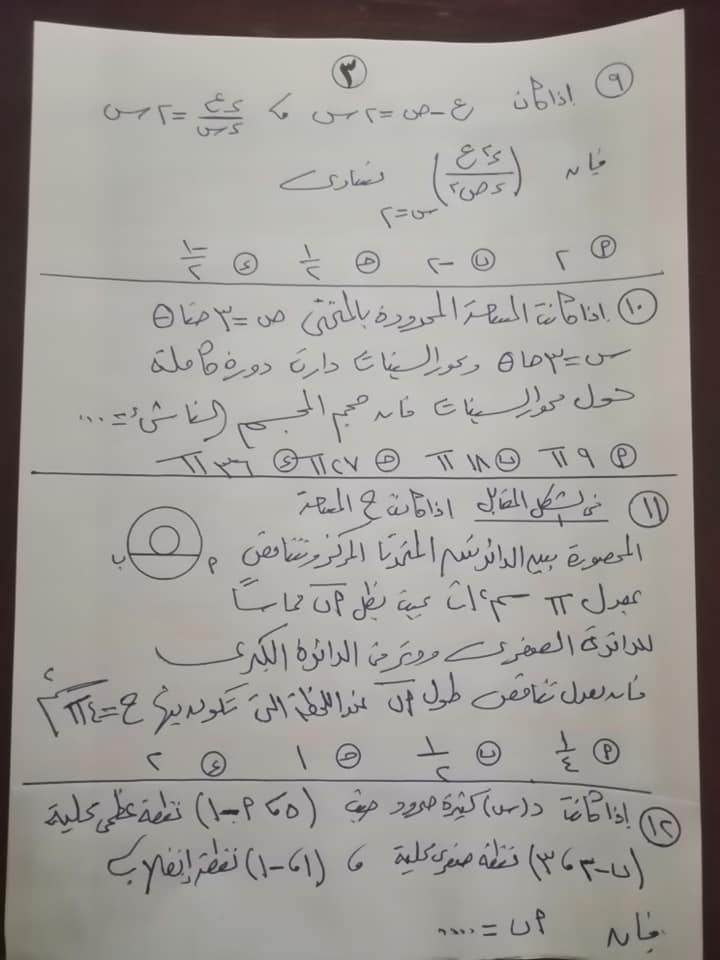 ٣
٩ إذا كان ع - ص = ٢ س ، دع/دس = ٢ س
فإن (د٢ع/دص٢) س=٢ تساوى
أ ٢ ب -٢ ج ١/٢ د -١/٢
١٠ إذا كانت المساحة المحدودة بالمنحنى ص = ٣ حتا θ
س = ٣ حا θ ومحور السينات دارت دورة كاملة
حول محور السينات فإن حجم المجسم الناشئ = ....
أ ٩ π ب ١٨ π ج ٢٧ π د ٣٦ π
١١ فى الشكل المقابل إذا كانت ح المساحة
ب أ
المحصورة بين الدائرتين المتحدتا المركز وتتناقص
بمعدل π سم٢/ث بحيث يظل أب مماساً
للدائرة الصغرى ووتر فى الدائرة الكبرى
فإن معدل تناقص طول أب عند اللحظة التى تكون فيها ح = ٤ π سم٢
أ ١/٤ ب ١/٢ ج ١ د ٢
١٢ إذا كانت د(س) كثيرة حدود حيث (٥ ، أ - ١) نقطة عظمى محلية
(ب - ٣ ، ٣) نقطة صغرى محلية ، (١ ، -١) نقطة إنقلاب
فإن أ ب = ....